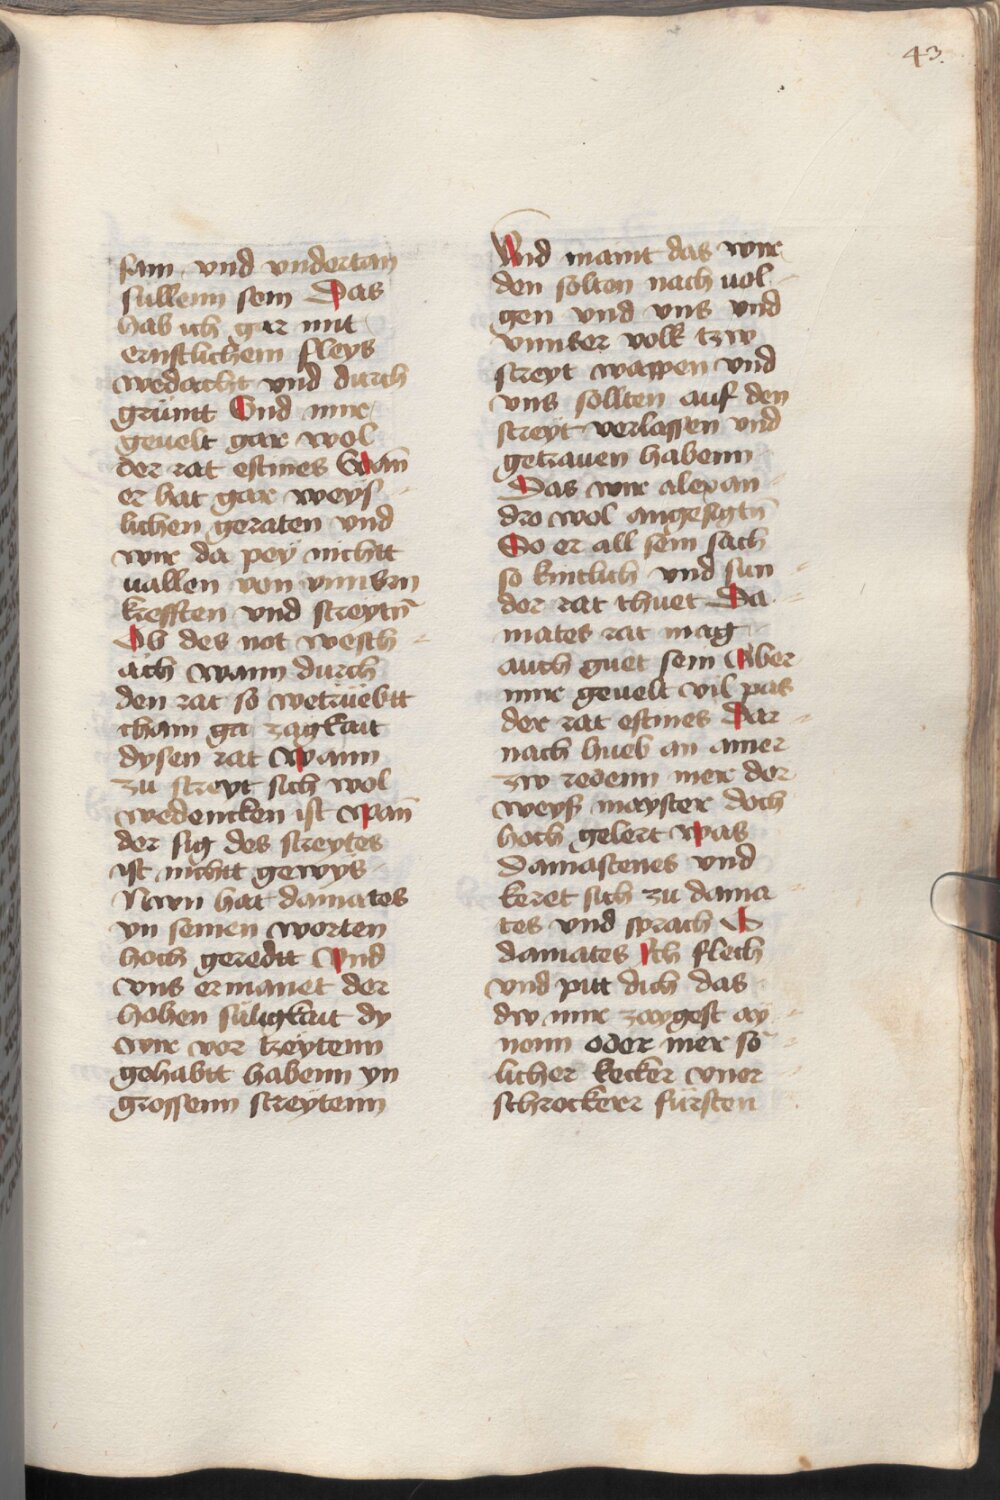 43.
sam vnd vndertan
sullenn sein Das
hab ich gar mit
ernstlichem fleys
wedacht vnd durch
grüntt Vnd mir
geuelt gar wol
der rat estines Wan̄
er hat gar weys
lichen geraten vnd
wir da pey nichtt
uallen von vnnsrn
krefften vnd streytn̄
Ob des not wesch
äch wann durch
den rat so wetrüebtt
cham ga zagkait
dysen rat Wann
zu streyt sich wol
wedencken ist Wan̄
der sig des streytes
ist nichtt gewys
Nwn hat damates
yn seinen worten
hoch geredtt Vnd
vns ermanet der
hohen säligkait dy
wir vor tzeytenn
gehabtt habenn yn
grossenn streytenn
Vnd maint das wir
den solten nach uol
gen vnd vns vnd
vnnser volk tzw
streyt wappen vnd
vns sollten auf den
streyt verlassen vnd
getrauen habenn
Das wir alexan
dro wol angesigtn̄
So er all sein sach
so kintlich vnd sun
der rat thuet Da
mates rat mag
auch guet sein Aber
mir geuelt vil pas
der rat estines Dar
nach hueb an ainer
zw redenn mer der
weys mayster doch
hoch gelert Was
Damastenes vnd
keret sich zu dama
tes vnd sprach O
damates Ich flech
vnd pitt dich das
dw mir zaygest ay
nenn oder mer so
licher kecker vner
schrockerr fürsten